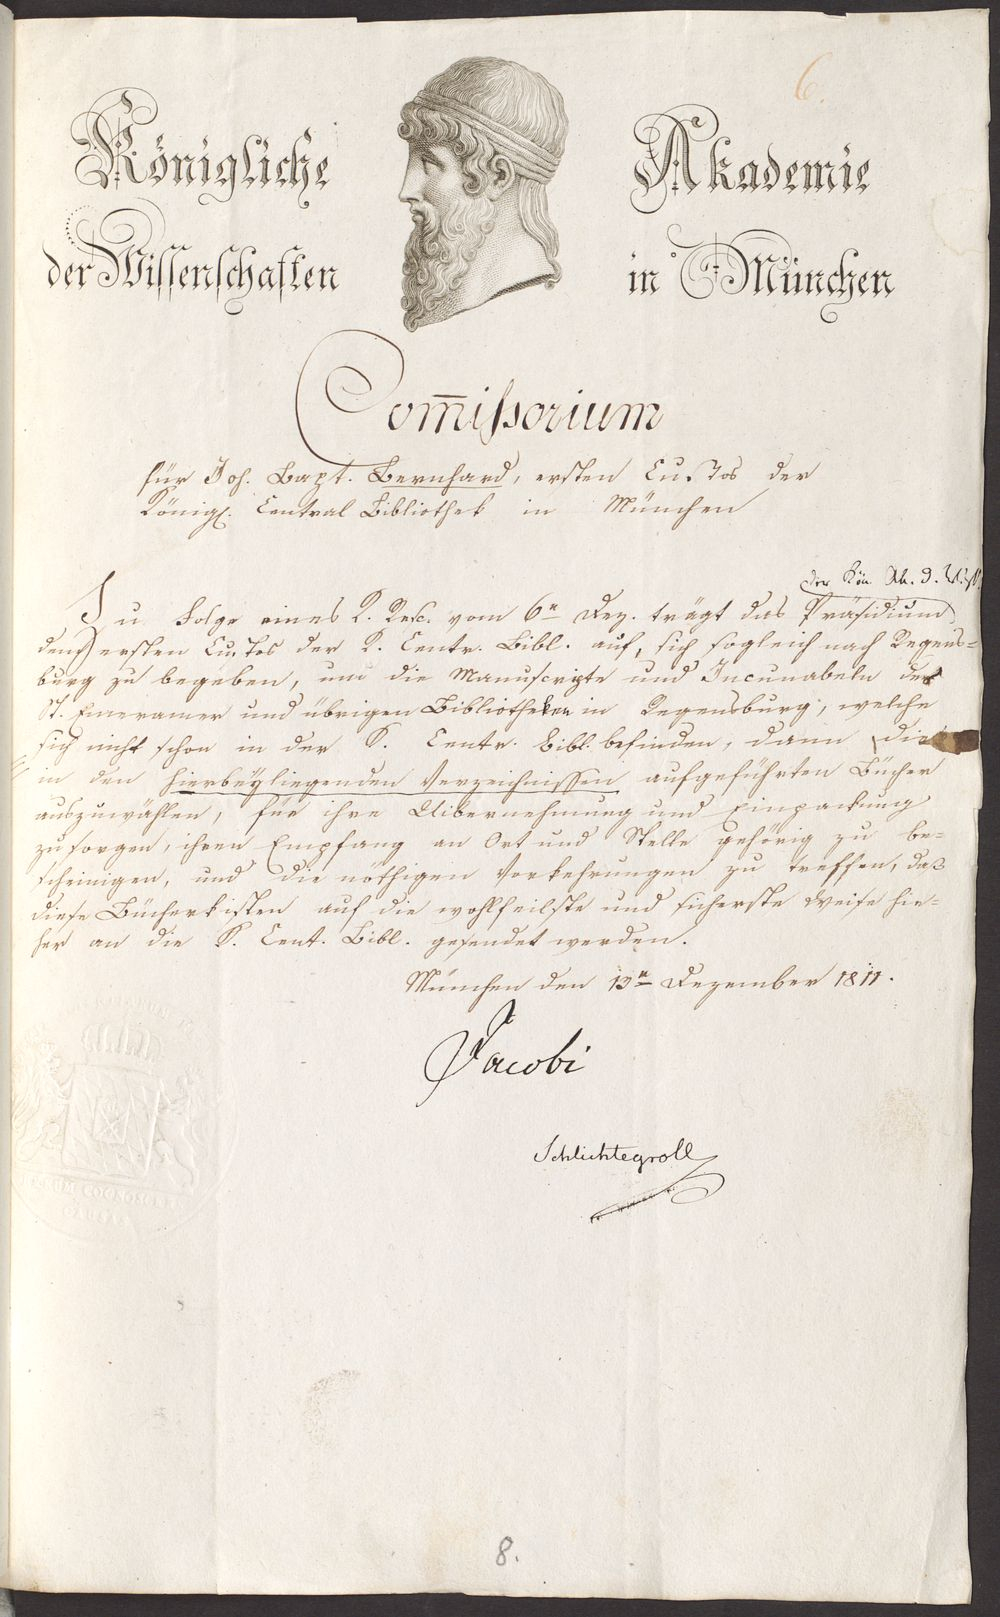 6.
Königliche Akademie
der Wissenschaften in München
Com̅issorium
für Joh. Bapt. Bernhard, ersten Custos der
Königl. Central Bibliothek in München
der Kön. Ak. d. Wiss.
Zu Folge eines K. Resc. vom 6n Dez. trägt das Präsidium
dem ersten Custos der K. Centr. Bibl. auf, sich sogleich nach Regens-
burg zu begeben, um die Manuscripte und Incunabeln der
St. Emeramer und übrigen Bibliotheken in Regensburg, welche
sich nicht schon in der K. Centr. Bibl. befinden, dann die
in den hierbeyliegenden Verzeichnissen aufgeführten Bücher
auszuwählen, für ihre Uibernehmung und Einpackung
zu sorgen, ihren Empfang an Ort und Stelle gehörig zu be-
scheinigen, und die nöthigen Vorkehrungen zu treffen, daß
diese Bücherkisten auf die wohlfeilste und sicherste Weise hie-
her an die K. Cent. Bibl. gesendet werden.
München den 13n Dezember 1811.
Jacobi
Schlichtegroll
RERUM COGNOSCERE
CAUSAS
8.